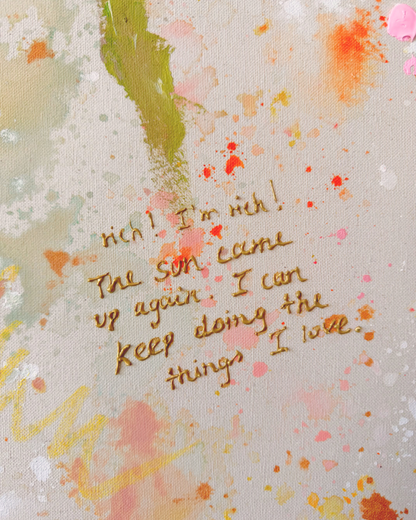 rich! I'm rich!
The sun came
up again I can
keep doing the
things I love.